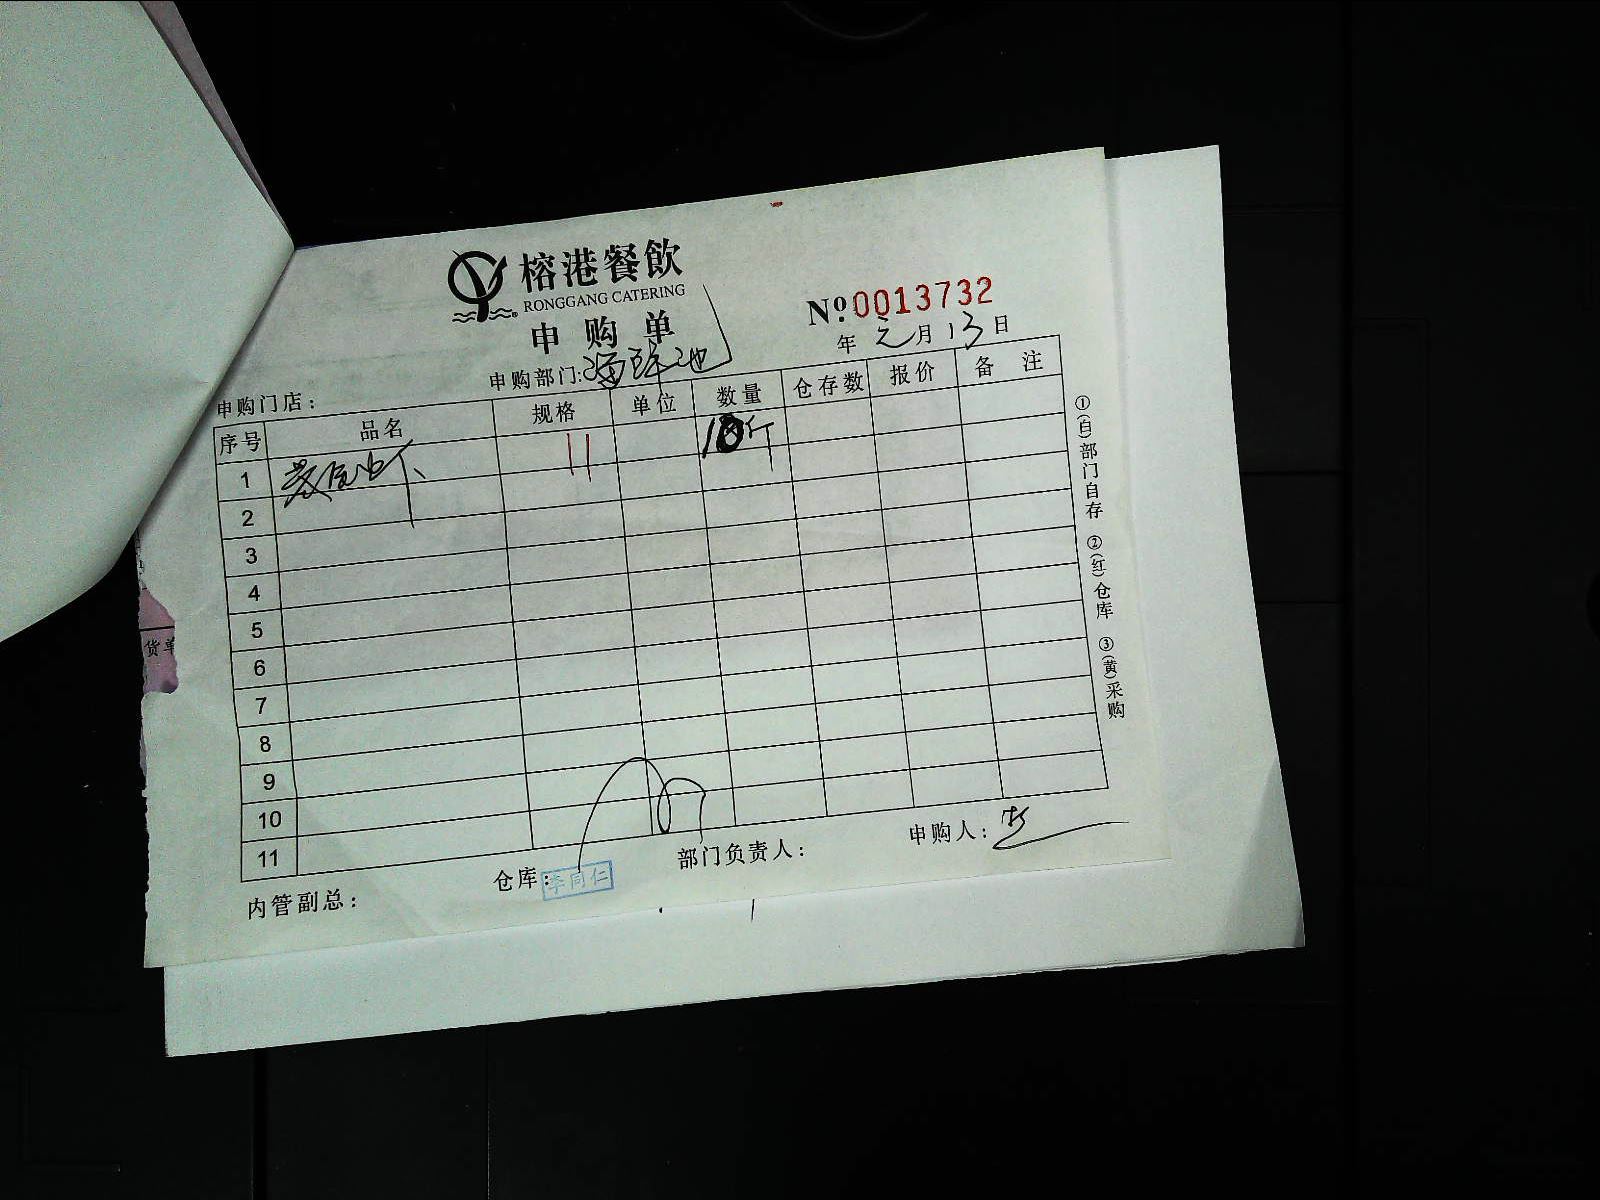 榕港餐飲
RONGGANG CATERING
申购单
№ 0013732
年 元月 13日
申购门店：
申购部门: 海鲜池
序号 品名 规格 单位 数量 仓存数 报价 备注
1 斤
2
3
4
5
6
7
8
9
10
11
内管副总：
仓库: 李同仁
部门负责人：
申购人：
①(白)部门自存 ②(红)仓库 ③(黄)采购
货单